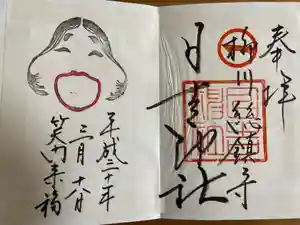 奉拝
柳川総鎮守
日吉神社
平成三十一年
三月十八日
笑門来福